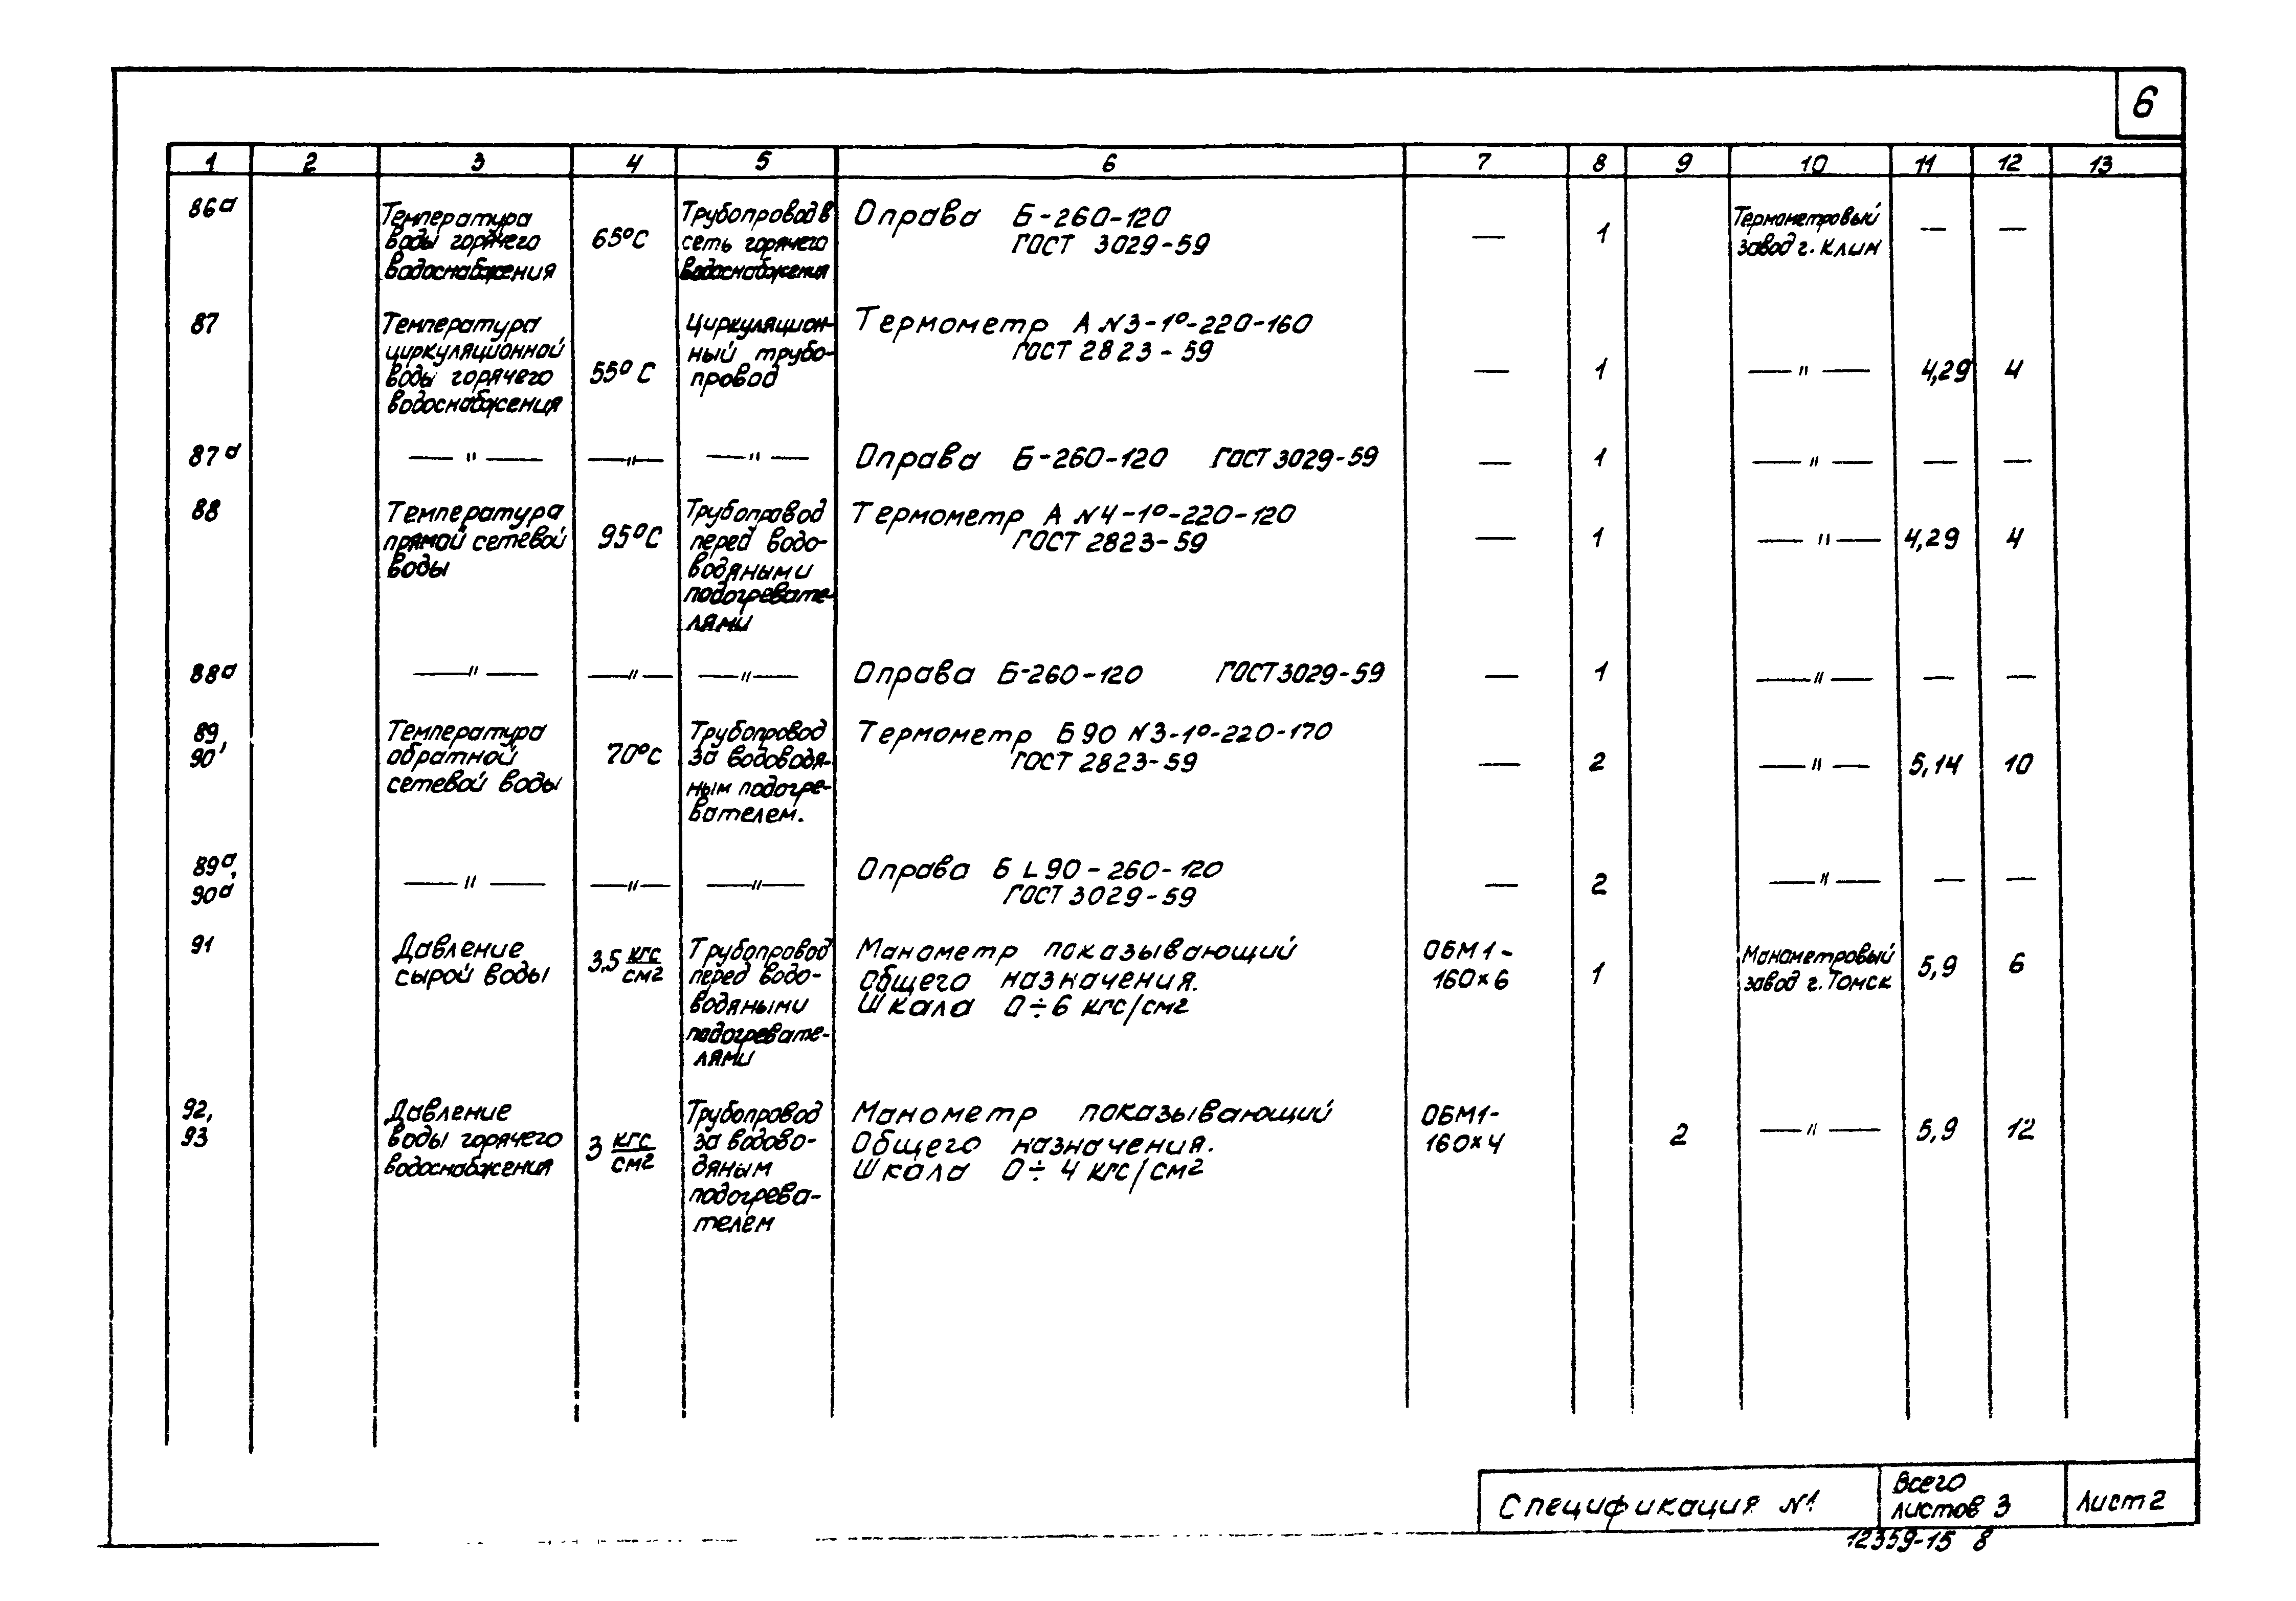 6
1 2 3 4 5 6 7 8 9 10 11 12 13
86а
Температура
воды горячего
водоснабжения
65°С
Трубопровод в
сеть горячего
водоснабжения
Оправа Б-260-120
ГОСТ 3029-59
— 1
Термометровый
завод г. Клин
— —
87
Температура
циркуляционной
воды горячего
водоснабжения
55°С
Циркуляцион-
ный трубо-
провод
Термометр А №3-1°-220-160
ГОСТ 2823-59
— 1 —〃— 4,29 4
87а —〃— —〃— —〃— Оправа Б-260-120 ГОСТ 3029-59 — 1 —〃— — —
88
Температура
прямой сетевой
воды
95°С
Трубопровод
перед водо-
водяными
подогревате-
лями
Термометр А №4-1°-220-120
ГОСТ 2823-59
— 1 —〃— 4,29 4
88а —〃— —〃— —〃— Оправа Б-260-120 ГОСТ 3029-59 — 1 —〃— — —
89,
90
Температура
обратной
сетевой воды
70°С
Трубопровод
за водоводя-
ным подогре-
вателем.
Термометр Б90 №3-1°-220-170
ГОСТ 2823-59
— 2 —〃— 5,14 10
89а,
90а
—〃— —〃— —〃—
Оправа Б L 90-260-120
ГОСТ 3029-59
— 2 —〃— — —
91
Давление
сырой воды
3,5 кгс
см2
Трубопровод
перед водо-
водяными
подогревате-
лями
Манометр показывающий
общего назначения.
Шкала 0÷6 кгс/см2
ОБМ1-
160×6
1
Манометровый
завод г. Томск
5,9 6
92,
93
Давление
воды горячего
водоснабжения
3 кгс
см2
Трубопровод
за водово-
дяным
подогрева-
телем
Манометр показывающий
Общего назначения.
Шкала 0÷4 кгс/см2
ОБМ1-
160×4
2 —〃— 5,9 12
Спецификация №1
Всего
листов 3
Лист 2
12359-15 8